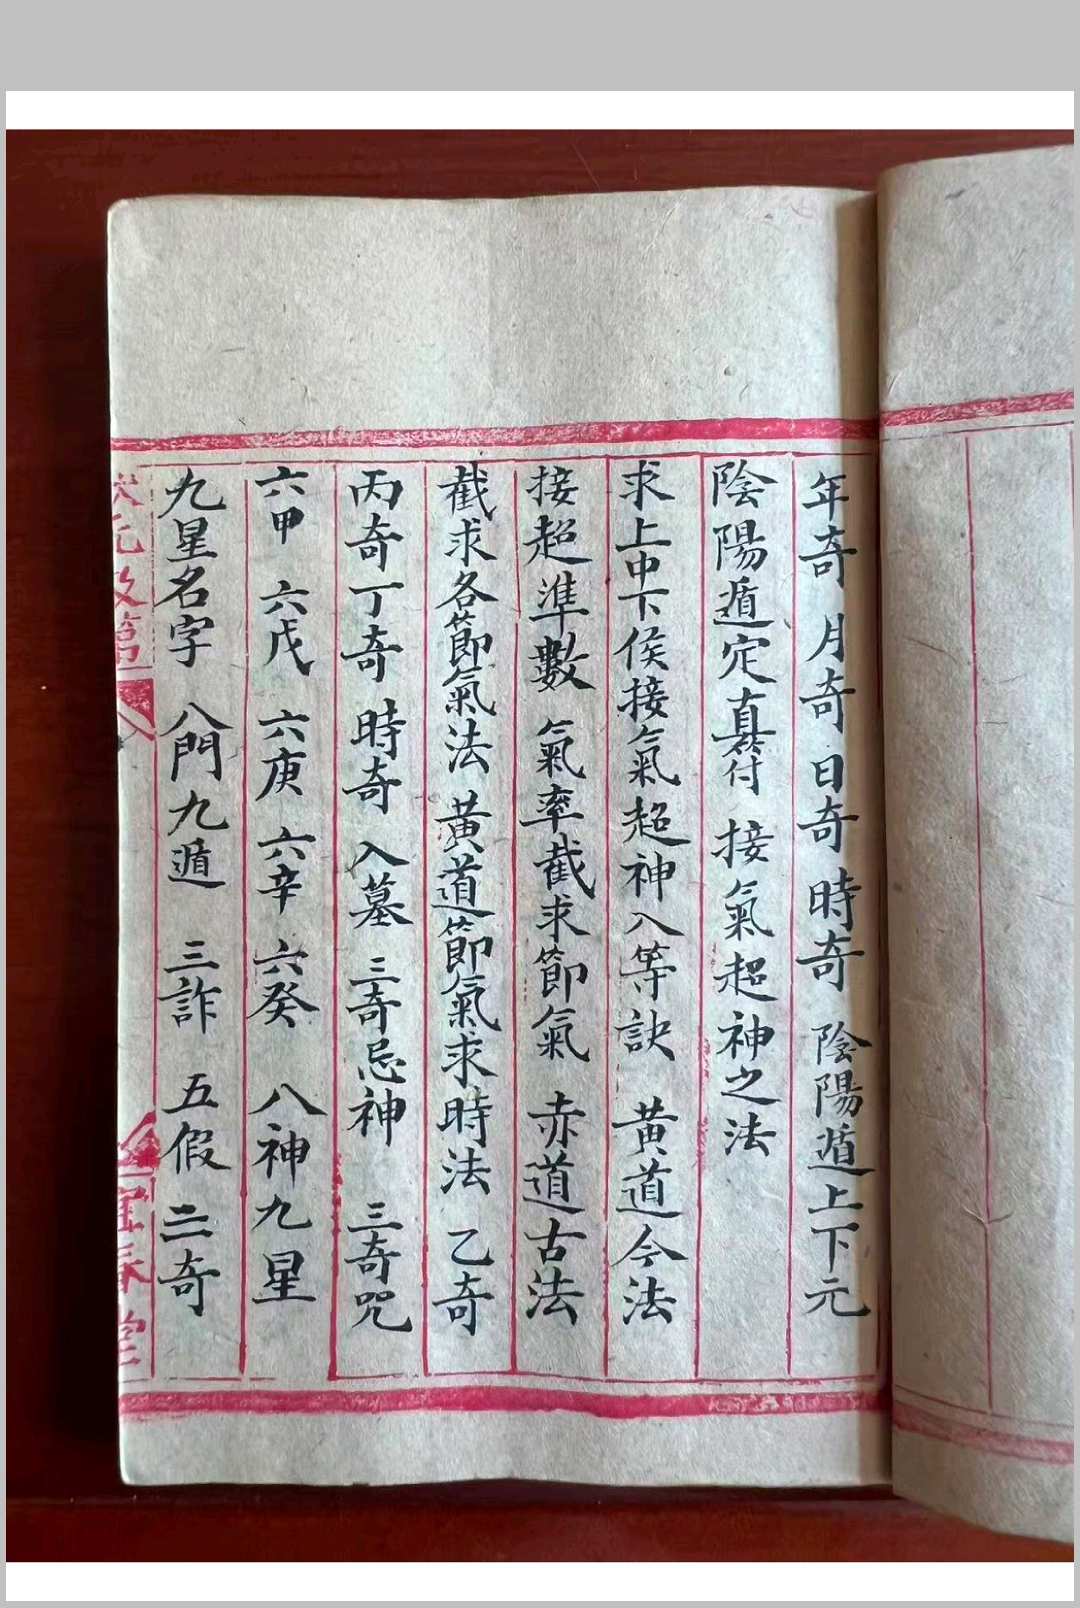 年奇 月奇 日奇 時奇 陰陽遁上下元
陰陽遁定真符 接氣超神之法
求上中下侯接氣超神入等訣 黃道今法
接超準數 氣率截求節氣 赤道古法
截求各節氣法 黃道節氣求時法 乙奇
丙奇丁奇 時奇 入墓 三奇忌神 三奇咒
六甲 六戊 六庚 六辛 六癸 八神九星
九星名字 八門九遁 三詐 五假 二奇